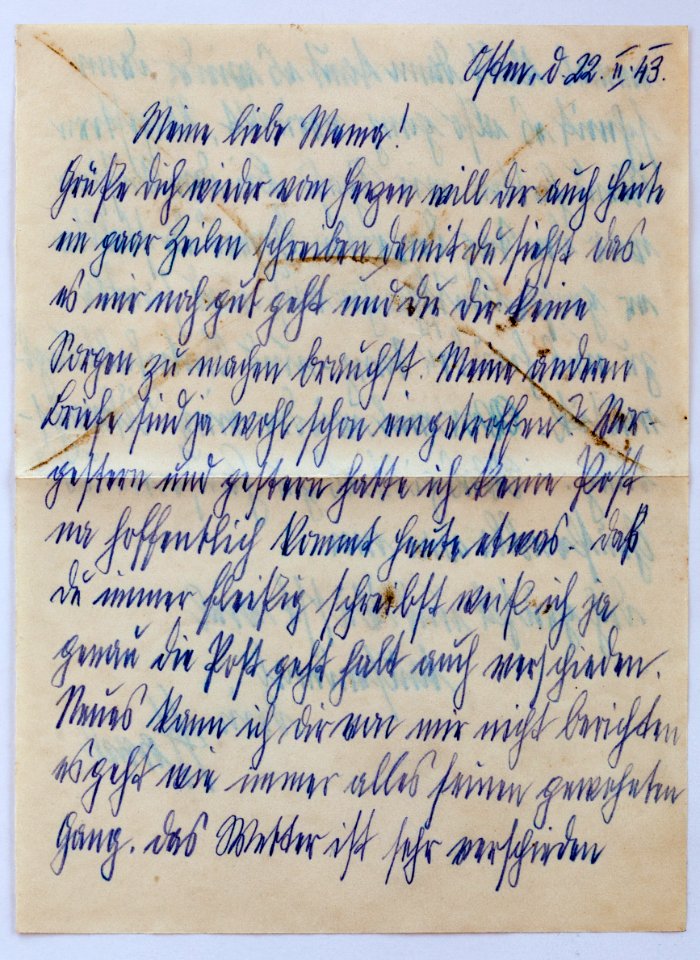 Osten, d. 22. II. 43.
Meine liebe Mama!
Grüße dich wieder vom Herzen will dir auch heute
ein paar Zeilen schreiben damit du siehst das
es mir noch gut geht und du dir keine
Sorgen zu machen brauchst. Meine anderen
Briefe sind ja wohl schon eingetroffen? Vor-
gestern und gestern hatte ich keine Post
na hoffentlich kommt heute etwas. daß
du immer fleißig schreibst weiß ich ja
genau die Post geht halt auch verschieden.
Neues kann ich dir von mir nicht berichten
es geht wie immer alles seinen gewohnten
Gang. das Wetter ist sehr verschieden